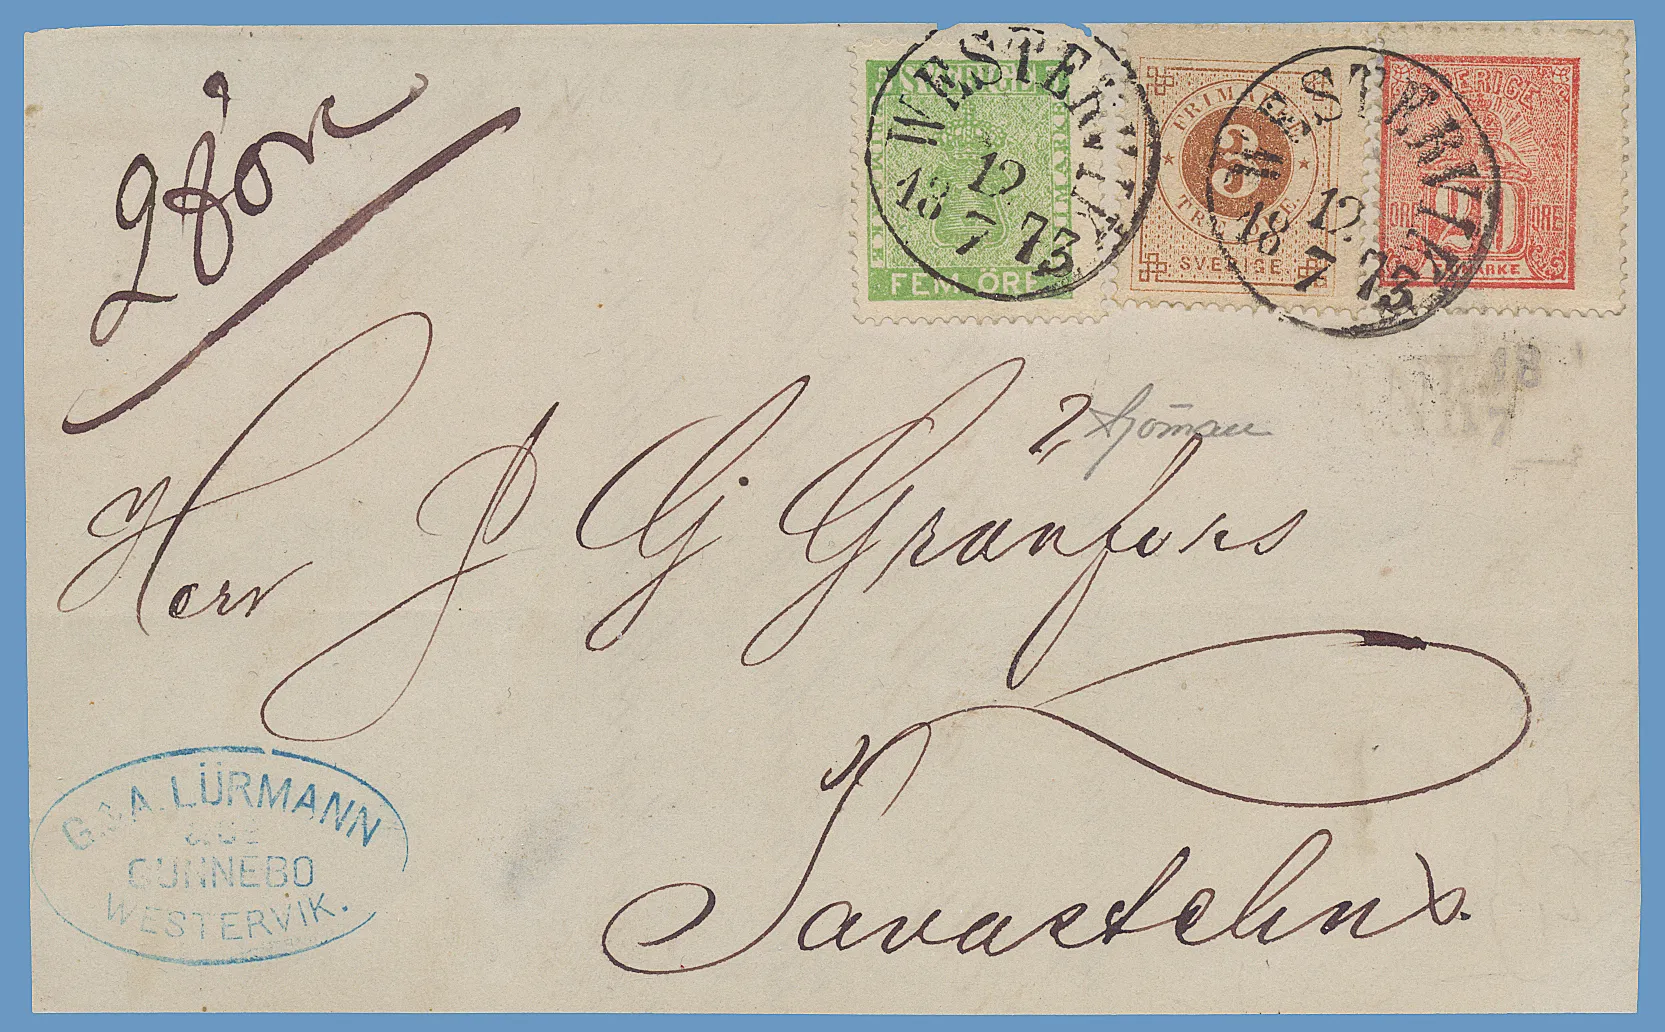 SVERIGE
FRIMÄRKE
FEM ÖRE
WESTERVIK
12.
18 7 73
FRIMÄRKE
3
TRE ÖRE.
SVERIGE
WESTERVIK
12.
18 7 73
SVERIGE
20
ÖRE ÖRE
FRIMÄRKE
18
7
Herr J G Granfors
Tavastehus.
G. & A. LÜRMANN
GUNNEBO
WESTERVIK.